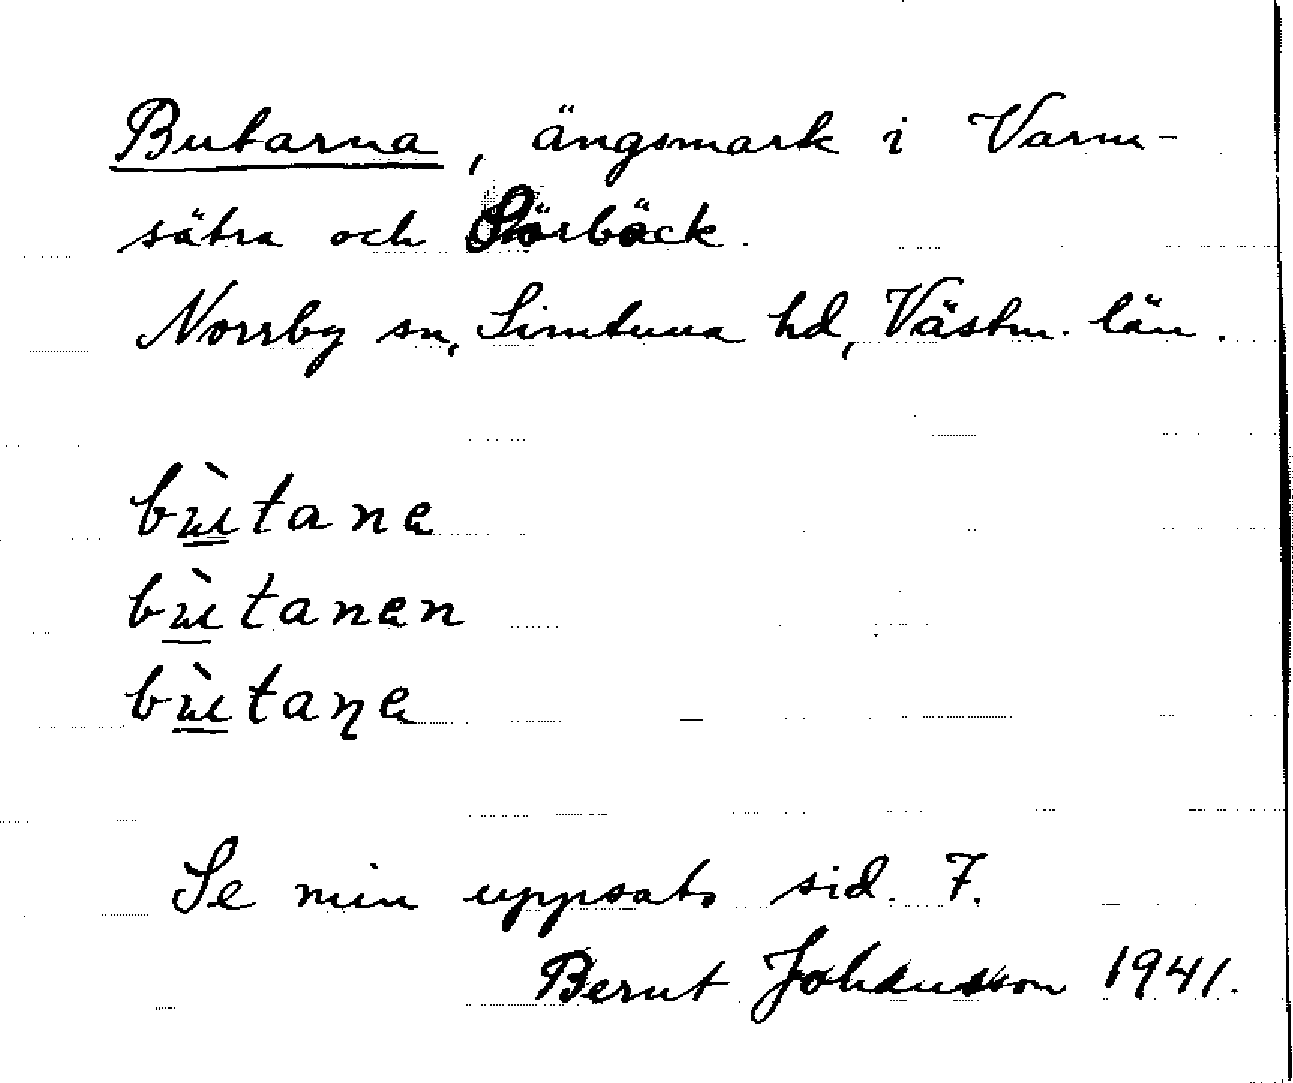 Butarna, ängsmark i Varm-
sätra och Sörbäck.
Norrby sn, Simtuna hd, Västm. län.
bùtana
bùtanan
bùtaṇa
Se min uppsats sid. 7.
Bernt Johansson 1941.